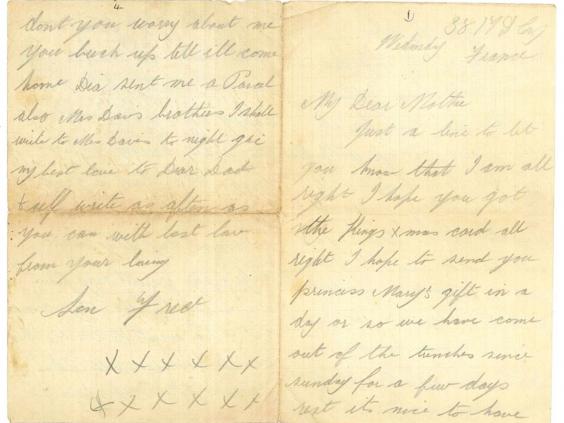 1
D Coy
France
My Dear Mother
Just a line to let
you know that I am all
right I hope you got
the things xmas card all
right I hope to send you
princess Mary's gift in a
day or so we have come
out of the trenches since
sunday for a few days
rest its nice to have
4
dont you worry about me
you buck up till ill come
home sent me a Parcel
also Mrs brothers I shall
write to Mrs Davis to night
my best love to Dear Dad
write as often as
you can with best love
from your loving
Son Fred
x x x x x x
x x x x x x